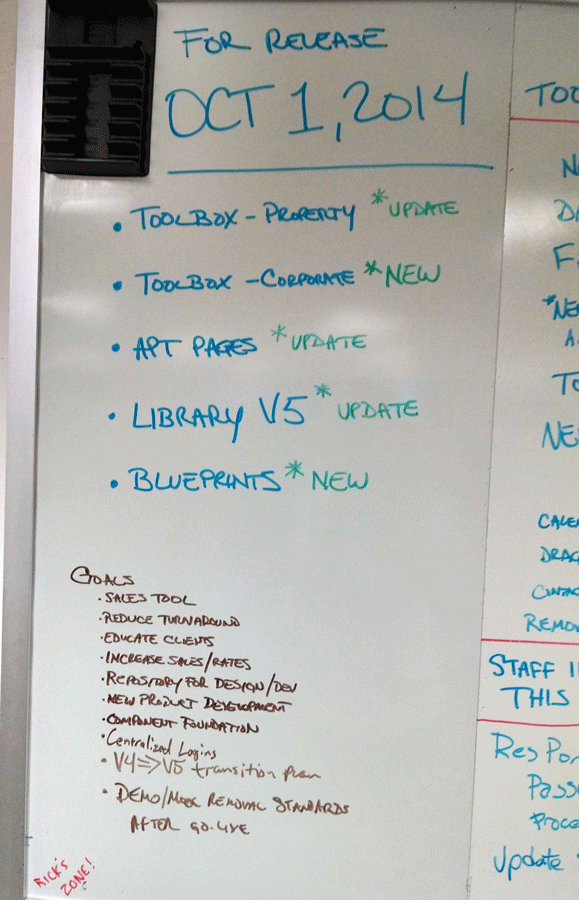 FOR RELEASE
OCT 1, 2014
• TOOLBOX - PROPERTY *UPDATE
• TOOLBOX - CORPORATE *NEW
• APT PAGES *UPDATE
• LIBRARY V5 *UPDATE
• BLUEPRINTS *NEW
GOALS
• SALES TOOL
• REDUCE TURNAROUND
• EDUCATE CLIENTS
• INCREASE SALES/RATES
• REPOSITORY FOR DESIGN/DEV
• NEW PRODUCT DEVELOPMENT
• COMPONENT FOUNDATION
• Centralized Logins
• V4 => V5 transition plan
• DEMO/MOCK REMOVAL STANDARDS
AFTER GO-LIVE
RICK'S
ZONE!
TOO
NE
DA
F
*NE
A
TO
NE
CALE
DRAG
CONTAC
REMO
STAFF I
THIS
Respo
Pass
Proce
Update